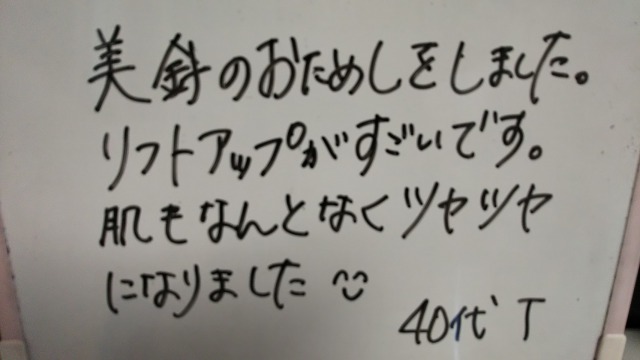 美針のおためしをしました。
リフトアップがすごいです。
肌もなんとなくツヤツヤ
になりました
40代 T